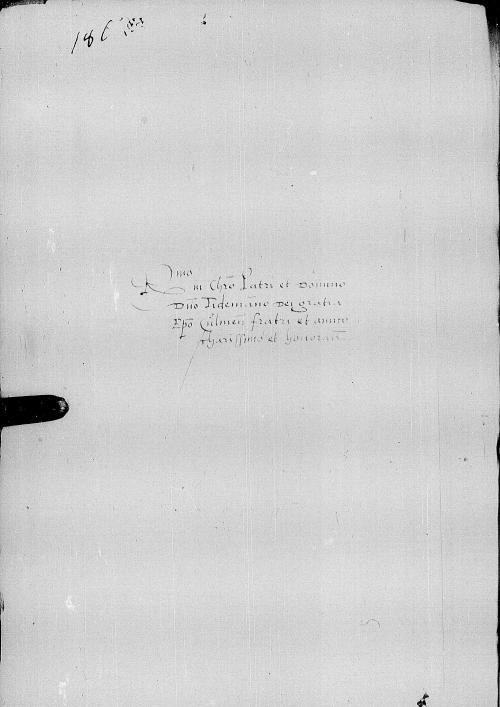 186
Rmo
in Chro Patri et Domino
Dno Tidemano Dei gratia
Epo Culmen fratri et amico
charissimo et honoran